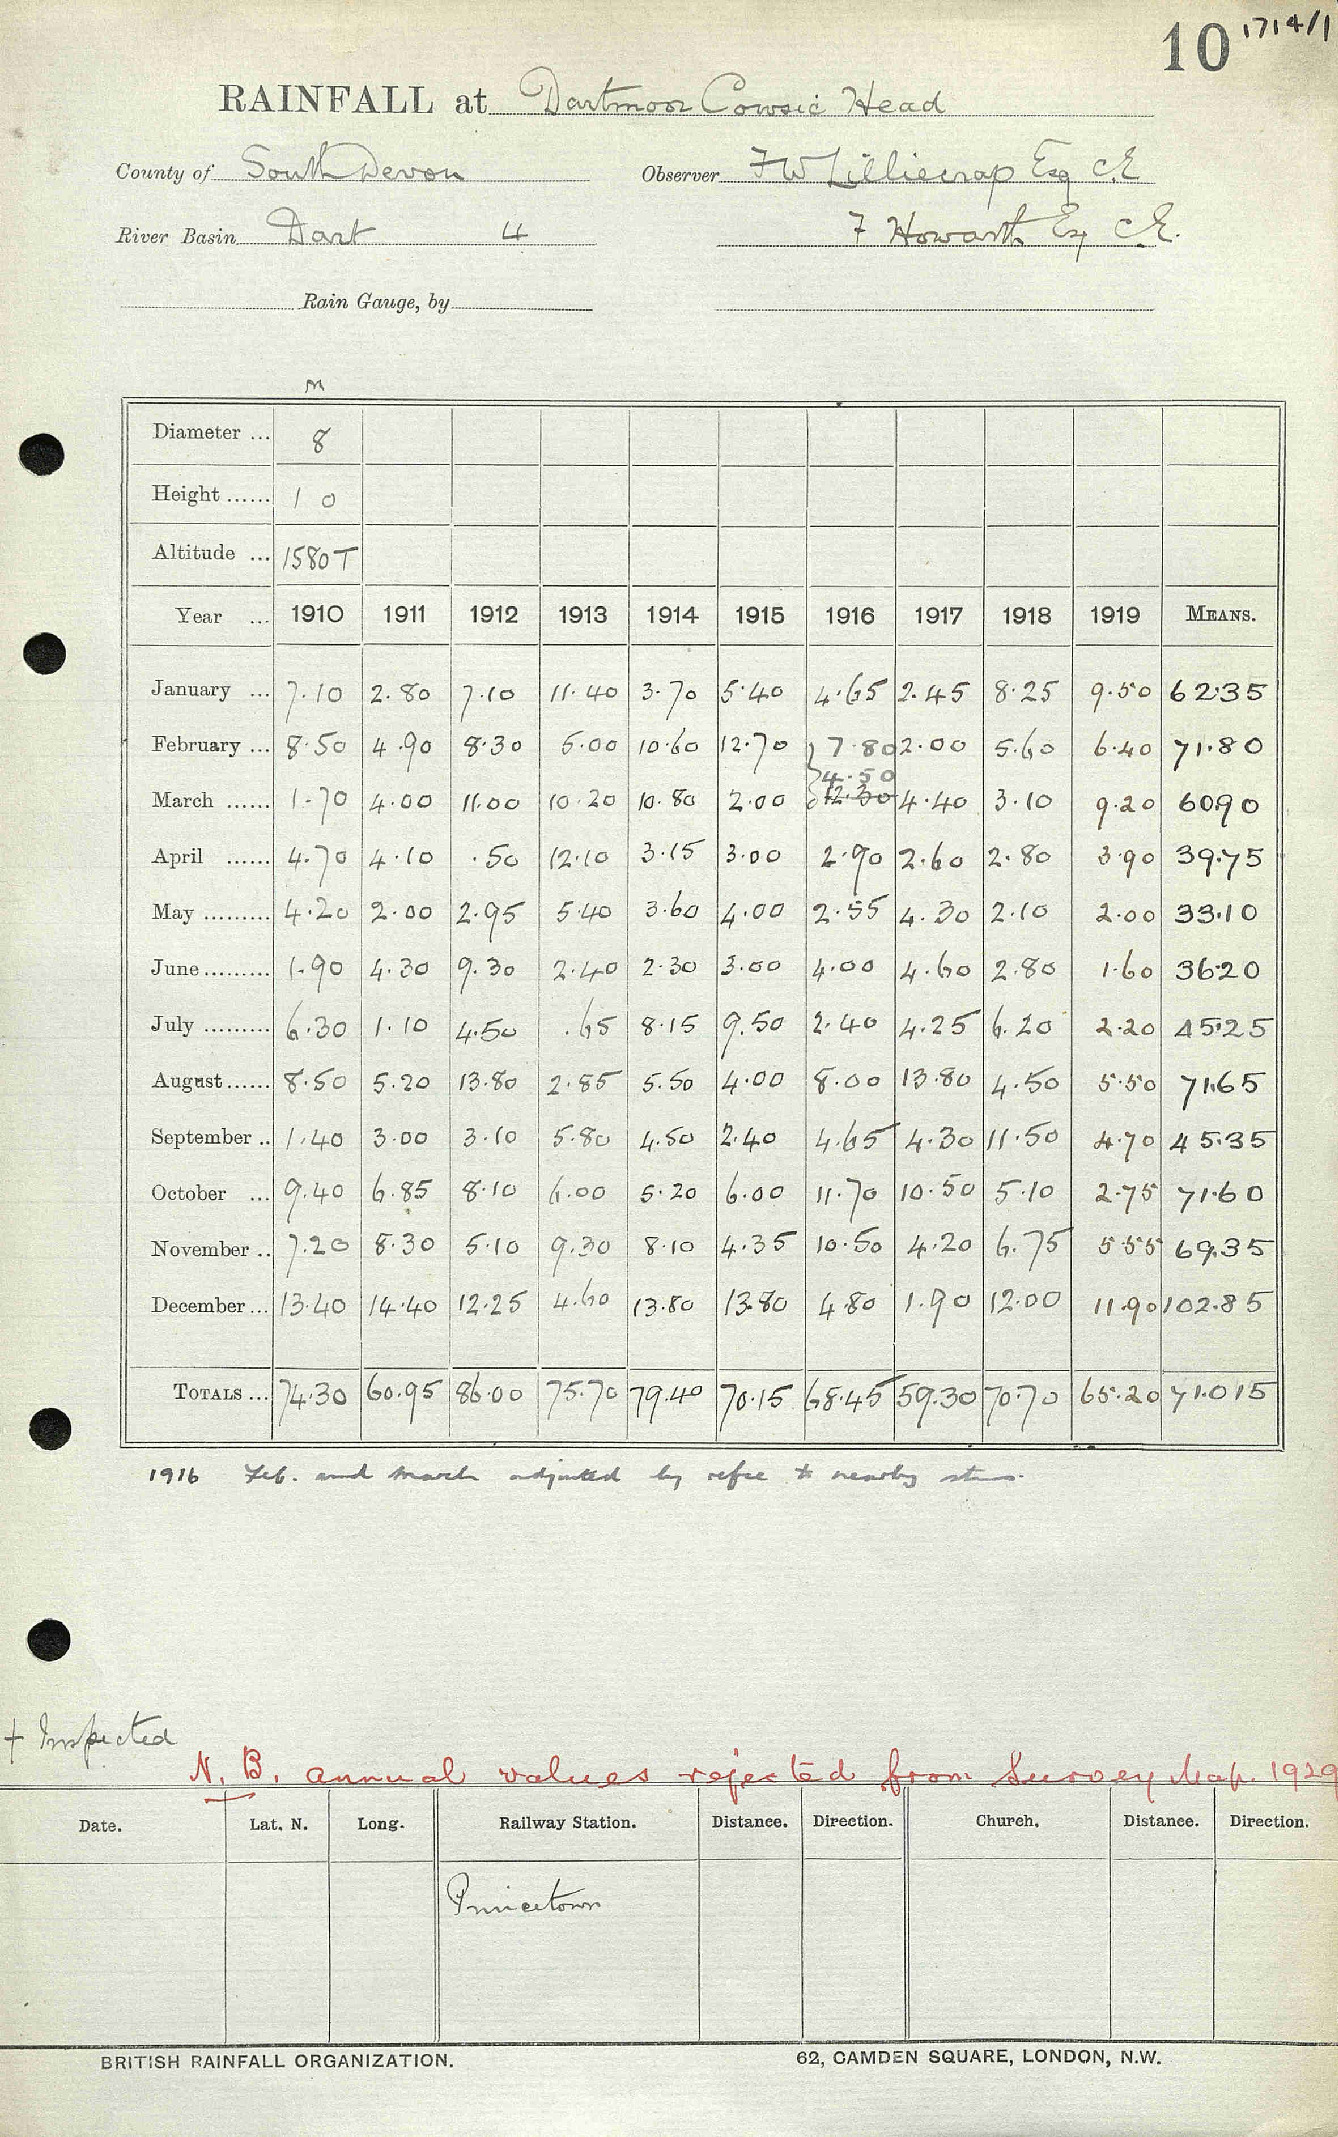 10 1714/1
RAINFALL at Dartmoor Cowsic Head
County of South Devon Observer FW Lilliecrap Esq C.E
River Basin Dart 4 F Howarth Esq C.E.
Rain Gauge, by
M
Diameter ... 8
Height ...... 1 0
Altitude ... 1580T
Year ... 1910 1911 1912 1913 1914 1915 1916 1917 1918 1919 MEANS.
January ... 7.10 2.80 7.10 11.40 3.70 5.40 4.65 2.45 8.25 9.50 62.35
February ... 8.50 4.90 8.30 5.00 10.60 12.70 7.80 2.00 5.60 6.40 71.80
4.50
March ...... 1.70 4.00 11.00 10.20 10.80 2.00 12.30 4.40 3.10 9.20 60.90
April ...... 4.70 4.10 .50 12.10 3.15 3.00 2.90 2.60 2.80 3.90 39.75
May ......... 4.20 2.00 2.95 5.40 3.60 4.00 2.55 4.30 2.10 2.00 33.10
June ......... 1.90 4.30 9.30 2.40 2.30 3.00 4.00 4.60 2.80 1.60 36.20
July ......... 6.30 1.10 4.50 .65 8.15 9.50 2.40 4.25 6.20 2.20 45.25
August ...... 8.50 5.20 13.80 2.85 5.50 4.00 8.00 13.80 4.50 5.50 71.65
September .. 1.40 3.00 3.10 5.80 4.50 2.40 4.65 4.30 11.50 4.70 45.35
October ... 9.40 6.85 8.10 6.00 5.20 6.00 11.70 10.50 5.10 2.75 71.60
November .. 7.20 8.30 5.10 9.30 8.10 4.35 10.50 4.20 6.75 5.55 69.35
December ... 13.40 14.40 12.25 4.60 13.80 13.80 4.80 1.90 12.00 11.90 102.85
TOTALS ... 74.30 60.95 86.00 75.70 79.40 70.15 68.45 59.30 70.70 65.20 71.015
1916 Feb. and March adjusted by refce to nearby stns.
+ Inspected
N.B. annual values rejected from Survey Map. 1929
Date. Lat. N. Long. Railway Station. Distance. Direction. Church. Distance. Direction.
Princetown
BRITISH RAINFALL ORGANIZATION. 62, CAMDEN SQUARE, LONDON, N.W.